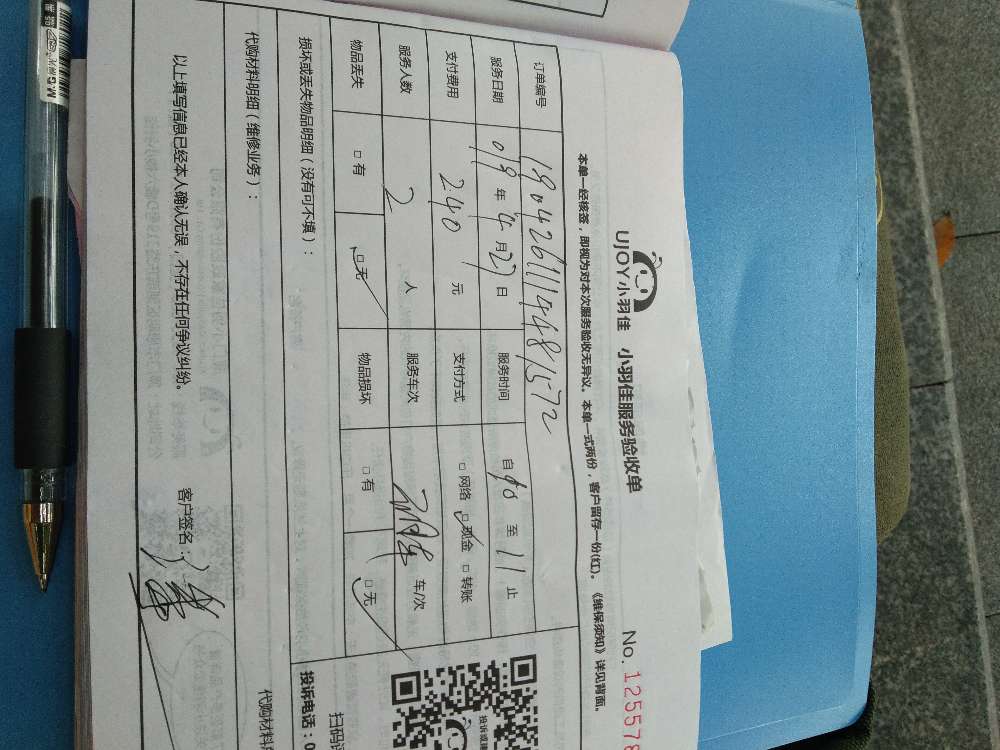 UJOY小羽佳 小羽佳服务验收单 No. 125578
本单一经核签，即视为对本次服务验收无异议。本单一式两份，客户留存一份(红)。《维保须知》详见背面。
订单编号 180426111448/1572
服务日期 018年4月27日 服务时间 自 至11止
支付费用 240元 支付方式 □网络 □现金 □转账
服务人数 2人 服务车次 车/次
物品丢失 □有 □无 物品损坏 □有 □无
损坏或丢失物品明细（没有可不填）：
扫码
投诉或建
投诉电话：0
代购材料明细（维修业务）：
代购材料
以上填写信息已经本人确认无误，不存在任何争议纠纷。 客户签名：
M&G